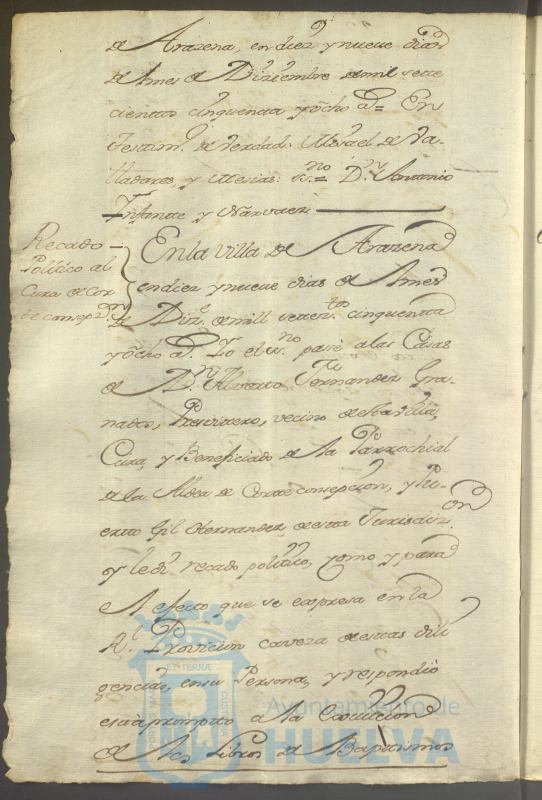 de Arazena, en diez y nueve dias
de Ames de Diziembre de mil sete
cientos cinquenta y ocho a.s= En
Testim.o de Verdad: Misael de Va-
lladares, y Mesias: ss.no= D.n Antonio
Infante y Narvaez
Recado
Politico al
Cura de Cor
te consepz.n
En la Villa de Arazena
en diez y nueve dias de Ames
de Diz.e de mill setez.tos cinquenta
y ocho a.s Yo el ss.no pasé a las Casas
de D.n Alberto Fernandez Gra-
nados, Presvitero, vecino de esta villa,
Cura, y Beneficiado de la Parrochial
de la Aldea de Corte consepcion, y Pu-
erto Gil Hernandez, de esta Jurisdiz.on
y le di recado politico, como y para
el efecto que se expresa en la
R.l Provicion caveza de estas dili
gencias, en su Persona, y respondió
está prompto a la Exivicion
de los Libros de Baptismos
ET TERRAE
CUSTODIA
Ayuntamiento de
HUELVA